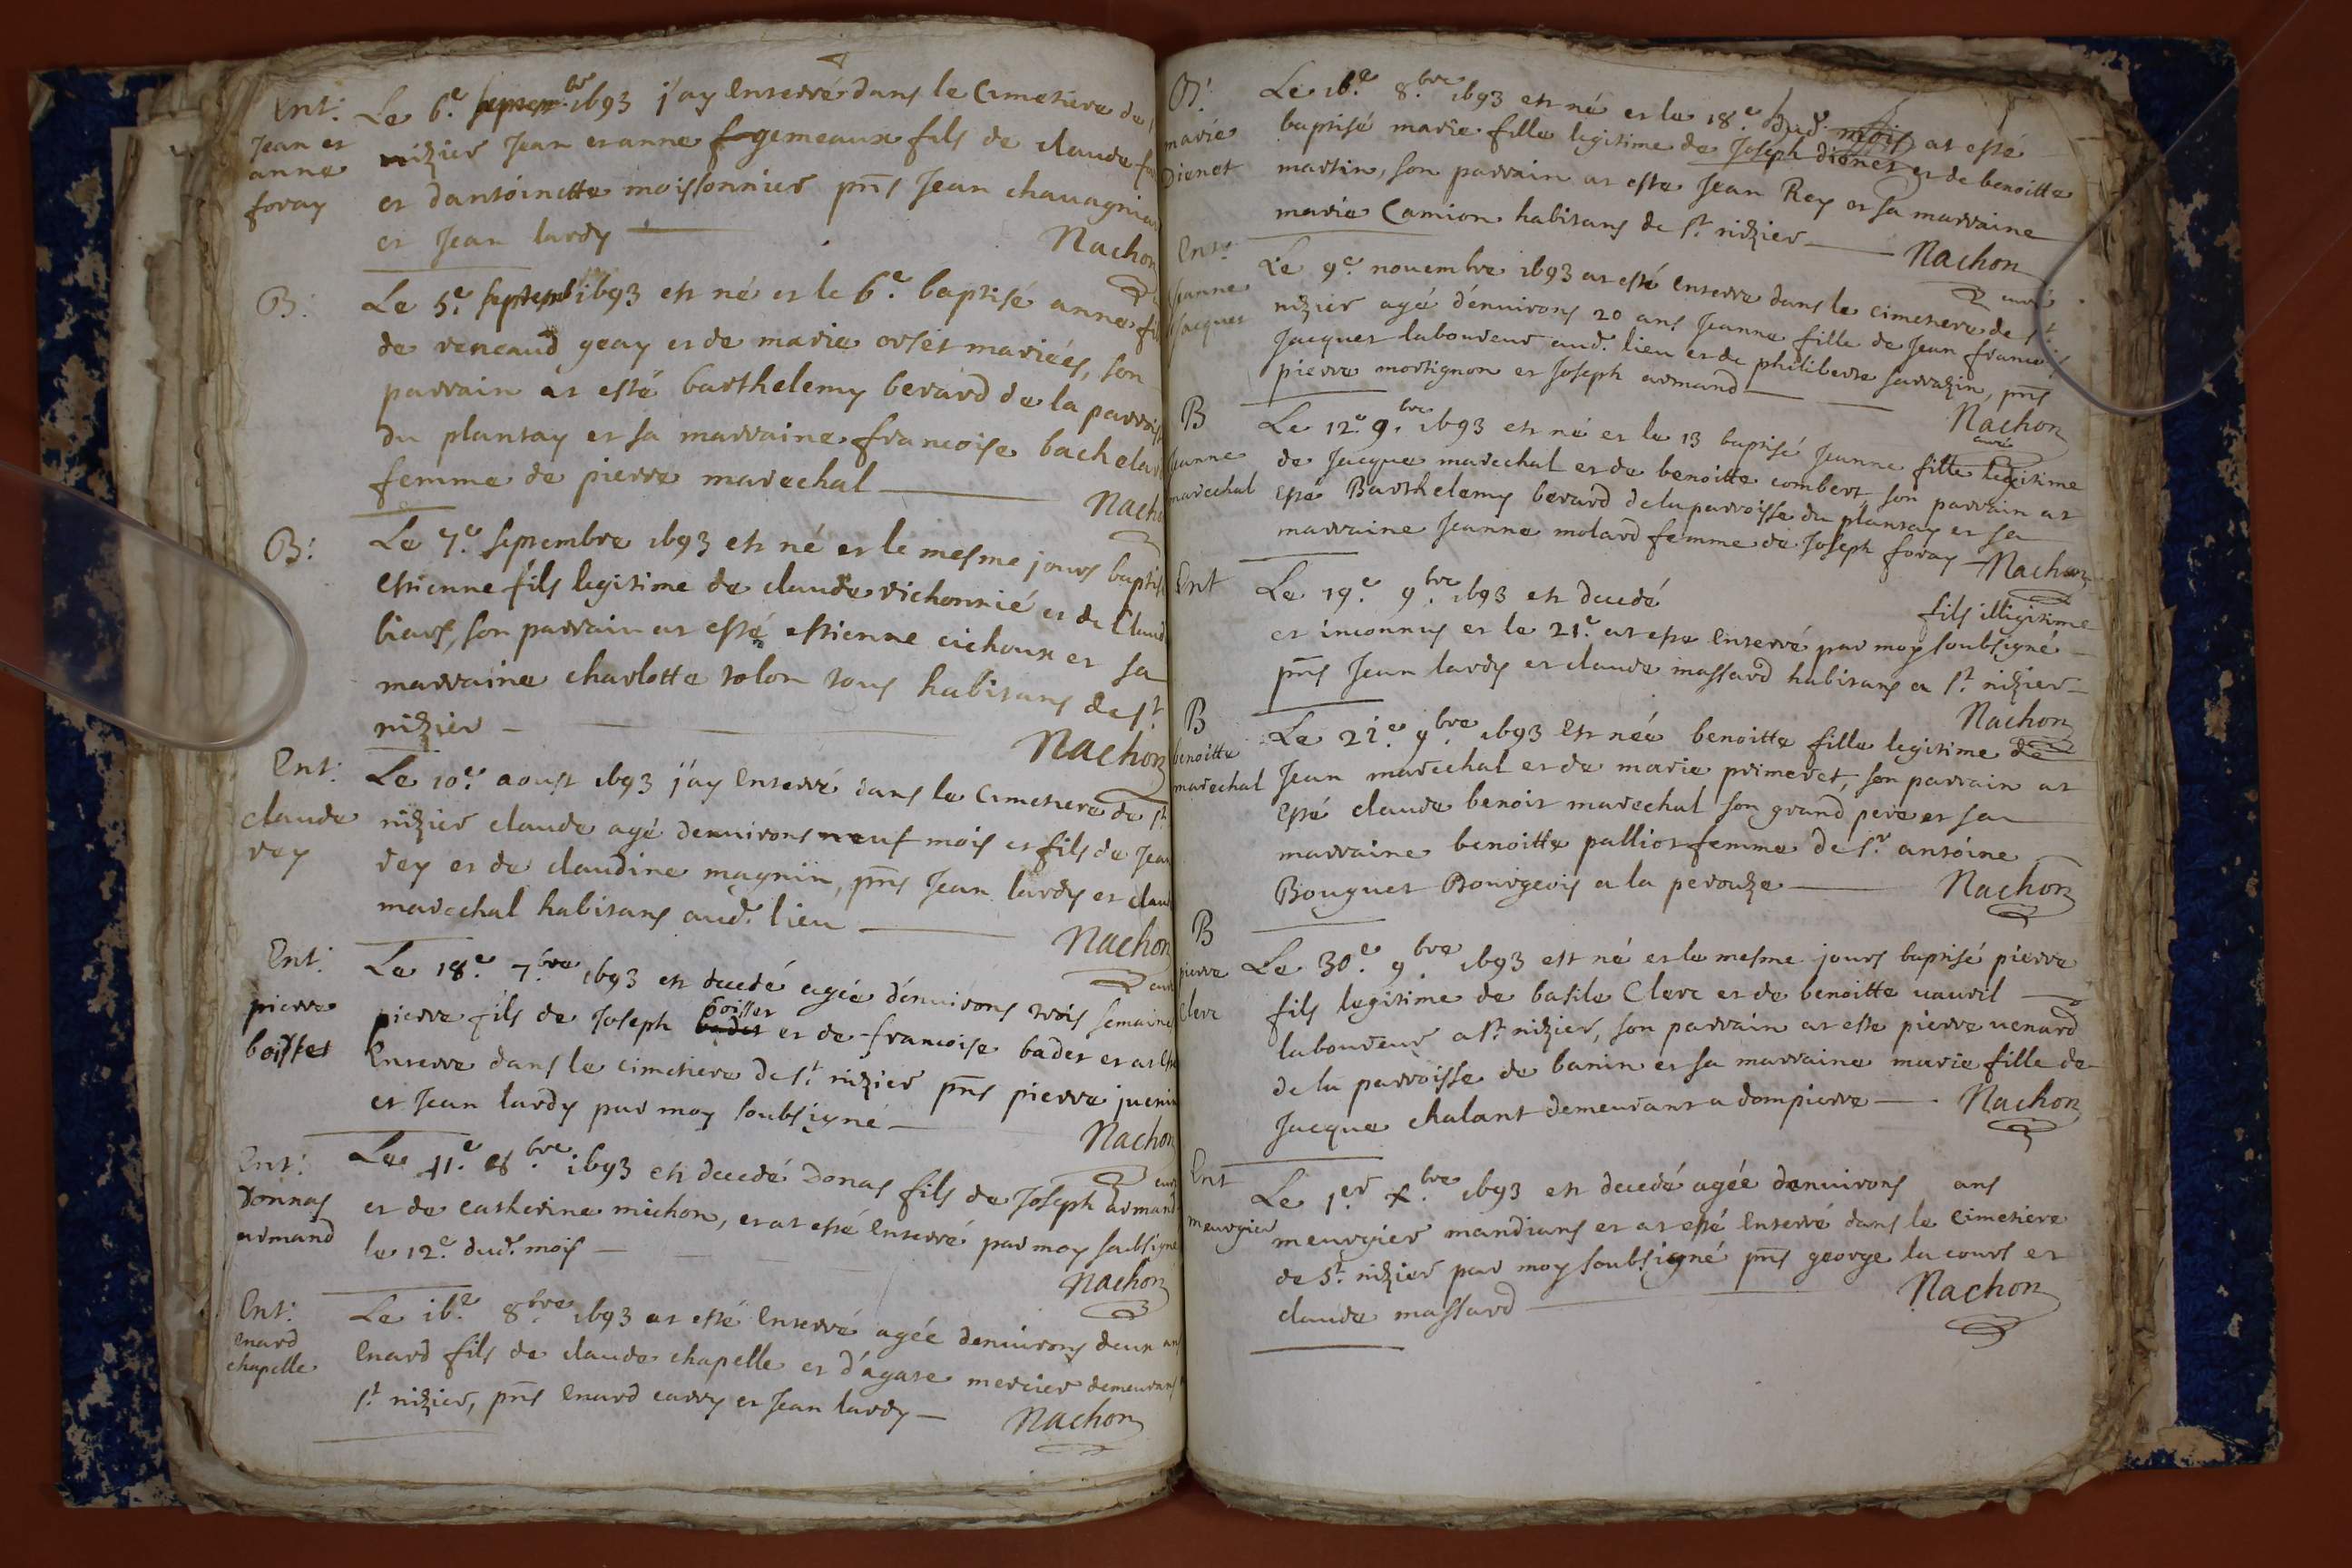 Ent:
Jean et
anne
foray
Le 6.e septembr 1693 j'ay Enterré dans le Cimetiere de
nizier Jean et anne gemeaux fils de claude
et d'antoinette moissonnier pns Jean
et Jean lardy
Nachon
B:
Le 5.e septemb 1693 est né et le 6.e baptisé anne
de reneaud geay et de marie orset mariées, son
parrain at esté barthelemy berard de la
du plantay et sa marraine francoise
femme de pierre marechal
B:
Le 7.e septembre 1693 est né et le mesme jours
estienne fils legitime de claude vichonnié et de
biard, son parrain at esté estienne cichoux et sa
marraine charlotte tolon tous habitans de st
nizier
Nachon
Ent:
claude
rey
Le 10.e aoust 1693 j'ay Enterré dans le Cimetiere de st
nizier claude agé denuirons neuf mois et fils de
rey et de claudine magnin, pns Jean lardy et
marechal habitans aud. lieu
Nachon
Ent:
pierre
boisset
Le 18.e 7.bre 1693 est decedé agée d'enuirons trois
boisset
pierre fils de Joseph et de francoise badet et at
Enterre dans le cimetiere de st nizier pns pierre
et Jean lardy par moy soubsigné
Nachon
Ent:
donnas
armand
Le 11.e 8.bre 1693 est decedé Donas fils de Joseph armand
et de catherine michon, et at esté Enterré par moy
le 12.e dud. mois
Nachon
Ent:
enard
chapelle
Le 16.e 8.bre 1693 at esté Enterré agée denuirons deux ans
Enard fils de claude chapelle et d'agate mercier
st nizier, pns Enard carry et Jean lardy
Nachon
B:
marie
Dienet
Le 16.e 8.bre 1693 est né et le 18.e dud. mois at esté
baptisé marie fille legitime de Joseph dienet et de benoitte
martin, son parrain at este Jean Rey et sa marraine
marie Camion habitans de st nizier
Nachon
curé
Ent:
Jeanne
Jacquet
Le 9.e nouembre 1693 at esté Enterre dans le cimetiere de st
nizier agé d'enuirons 20 ans Jeanne fille de Jean francois
Jacquet laboureur aud. lieu et de philiberte sarrazin, pns
pierre mortignon et Joseph armand
Nachon
curé
B
Jeanne
marechal
Le 12.e 9.bre 1693 est né et le 13 baptisé Jeanne fille legitime
de Jacque marechal et de benoitte combert son parrain at
esté Barthelemy berard de la parroisse du plantay et sa
marraine Jeanne molard femme de Joseph foray Nachon
Ent
Le 19.e 9.bre 1693 est decedé fils illigitime
et inconnus et le 21.e at este Enterré par moy soubsigné
pns Jean lardy et claude massard habitans a st nizier
Nachon
B
benoitte
marechal
Le 21.e 9.bre 1693 Est néé benoitte fille legitime de
Jean marechal et de marie primeret, son parrain at
Esté claude benoit marechal son grand pere et sa
marraine benoitte palliot femme de sr antoine
Bouguet Bourgeois a la perouze
Nachon
B
pierre
Clerc
Le 30.e 9.bre 1693 est né et le mesme jours baptisé pierre
fils legitime de basile Clerc et de benoitte vauril
laboureur a st nizier, son parrain at este pierre uenard
de la parroisse de banin et sa marraine marie fille de
Jacque chalant demeurant a dompierre Nachon
Ent
meurgier
Le 1.er x.bre 1693 est decedé agée denuirons ans
meurgier mandians et at esté Enterré dans le cimetiere
de St nizier par moy soubsigné pns george la cours et
claude massard
Nachon